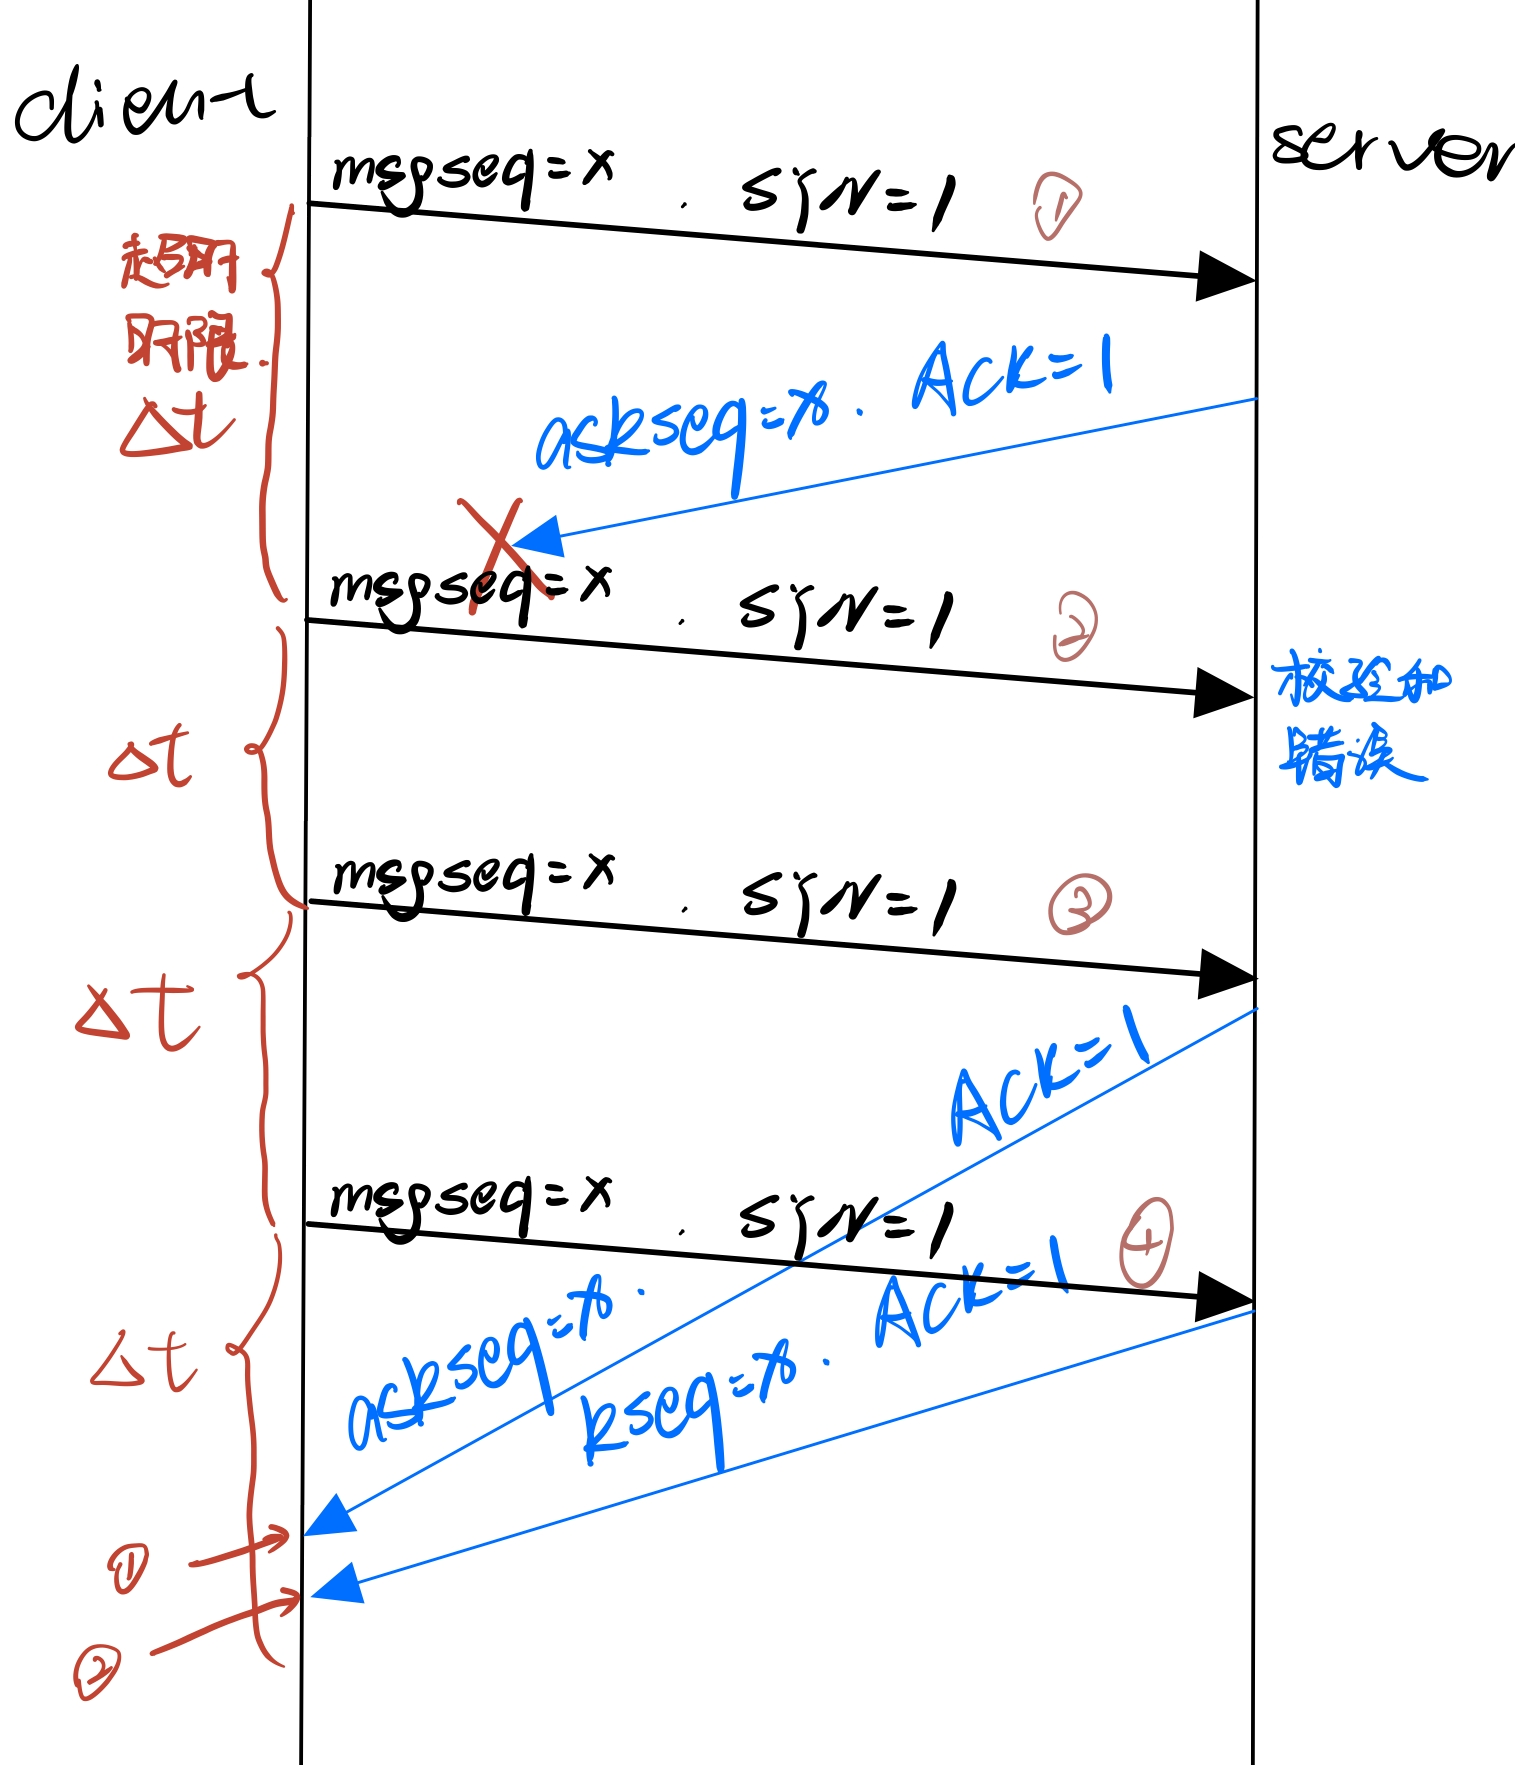 client
server
msgseq=x . SYN=1 ①
超时
时限.
Δt
ackseq=x. ACK=1
msgseq=x . SYN=1 ②
校验和
错误
Δt
msgseq=x . SYN=1 ③
Δt
ACK=1
msgseq=x . SYN=1 ④
ackseq=x.
kseq=x. ACK=1
Δt
①
②